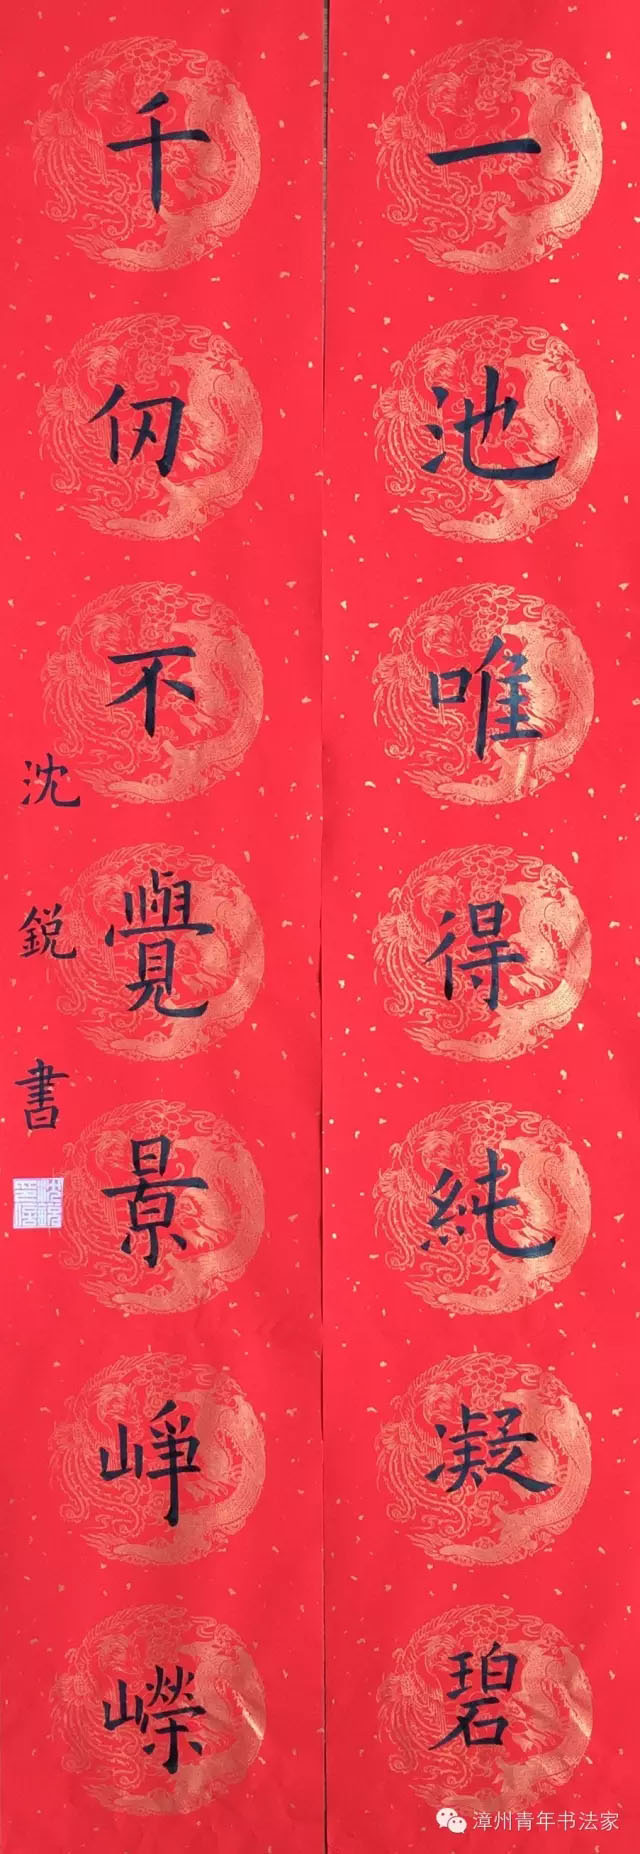 一池唯得純凝碧
千仞不覺景崢嶸
沈鋭書
漳州青年书法家